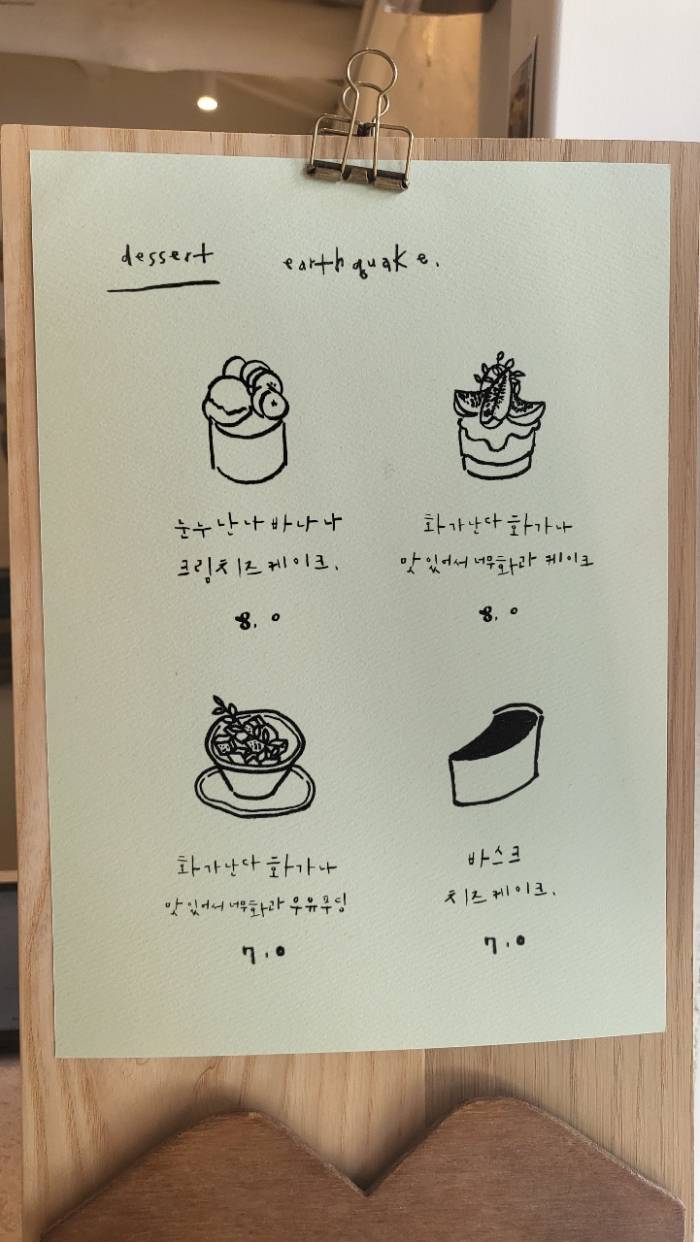 dessert
earthquake.
눈누난나 바나나
크림치즈케이크.
8.0
화가난다 화가나
맛있어서 너무화과 케이크
8.0
화가난다 화가나
맛있어서 너무화과 우유푸딩
7.0
바스크
치즈케이크.
7.0